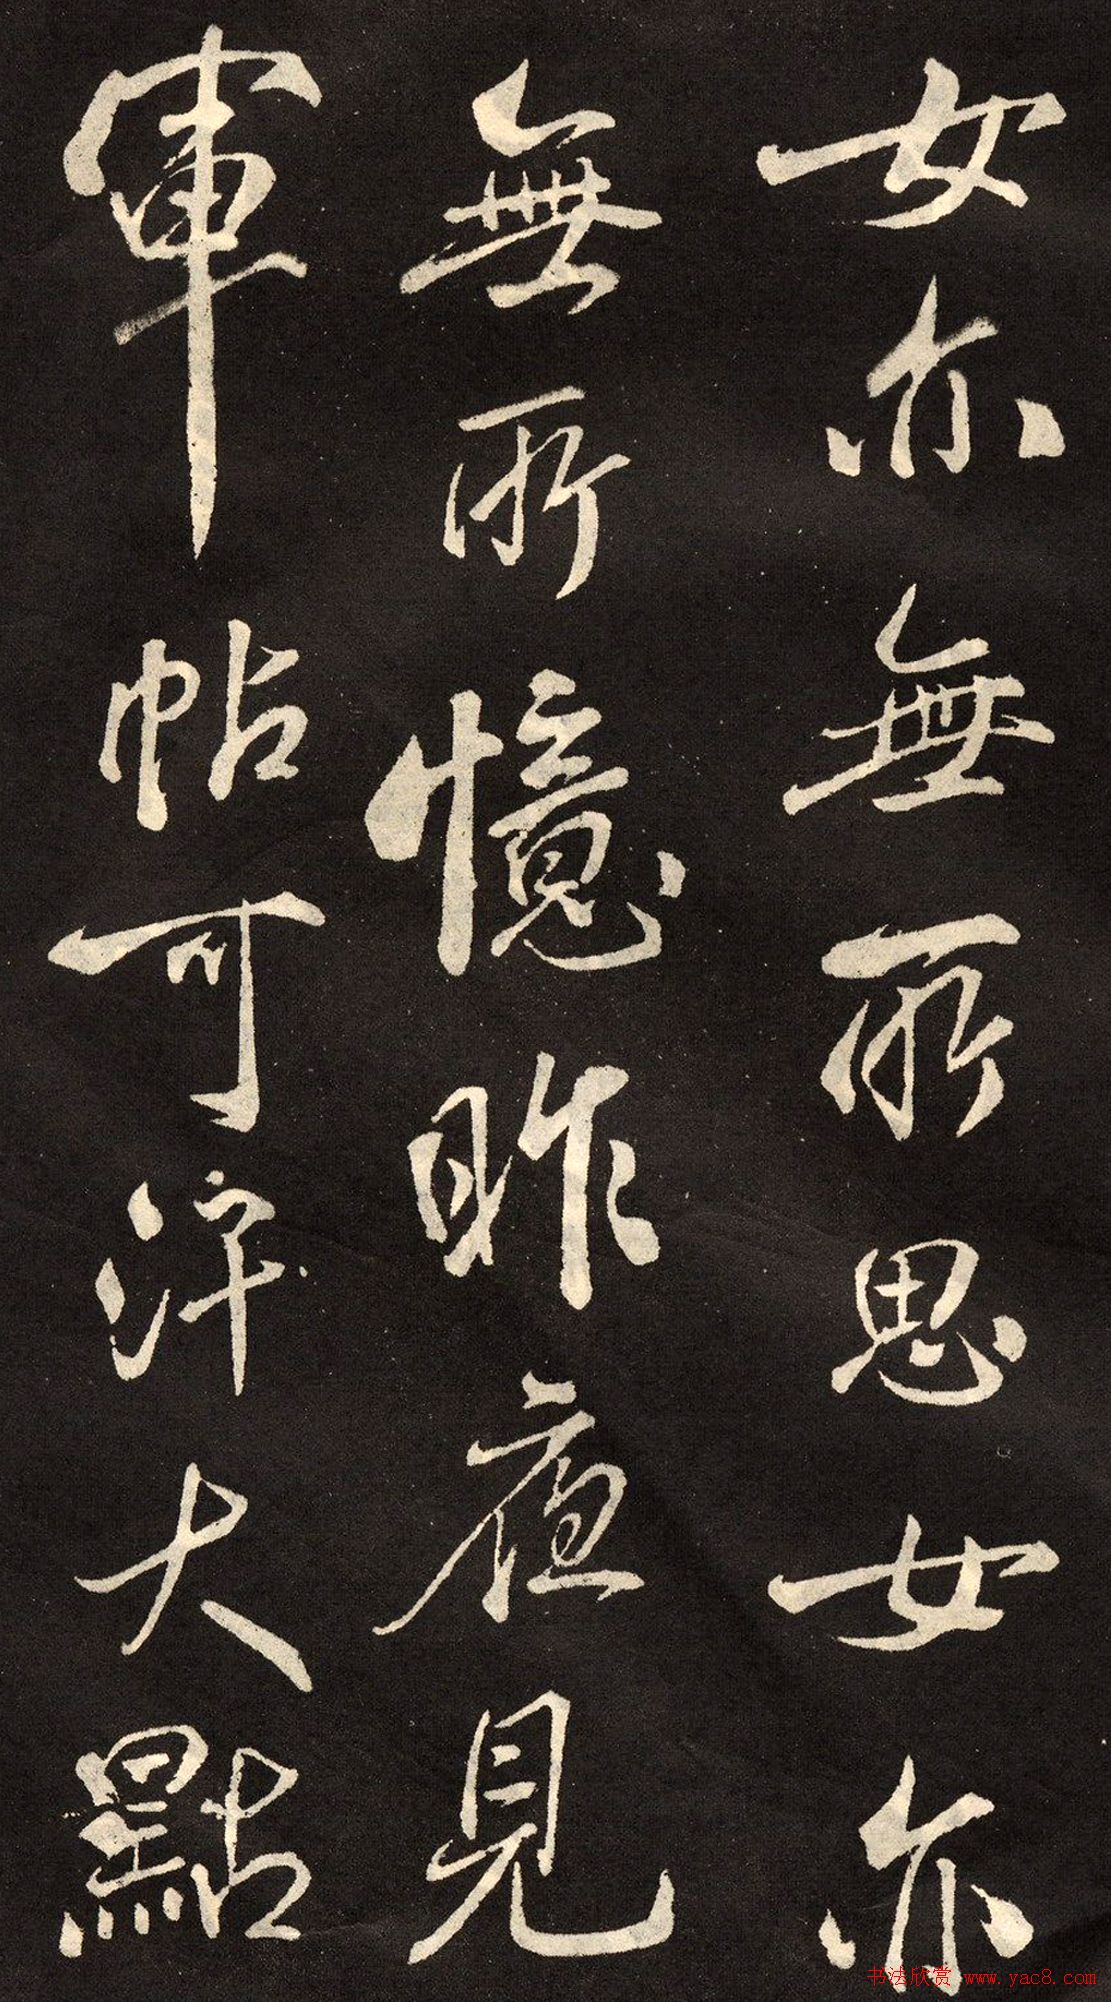 女亦無所思女亦
無所憶昨夜見
軍帖可汗大點
书法欣赏 www.yac8.com